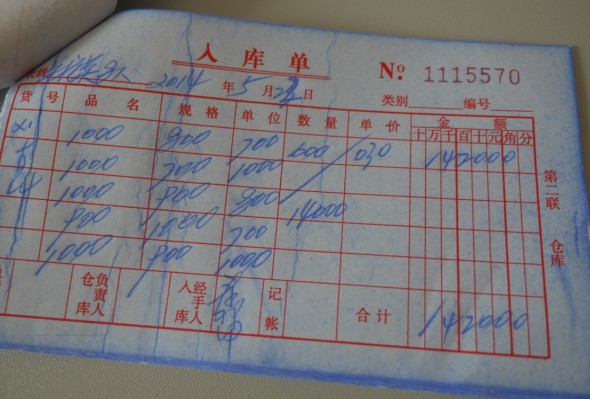 入库单
№ 1115570
2014年5月 日
类别 编号
货号 品名 规格 单位 数量 单价 金额
十万千百十元角分
1000 800 700 600 030 142000
1000 700 1000
1000 800 800 14000
800 1000 700
1000 800 1000
第二联 仓库
仓库负责人 入库经手人 记帐 合计 142000